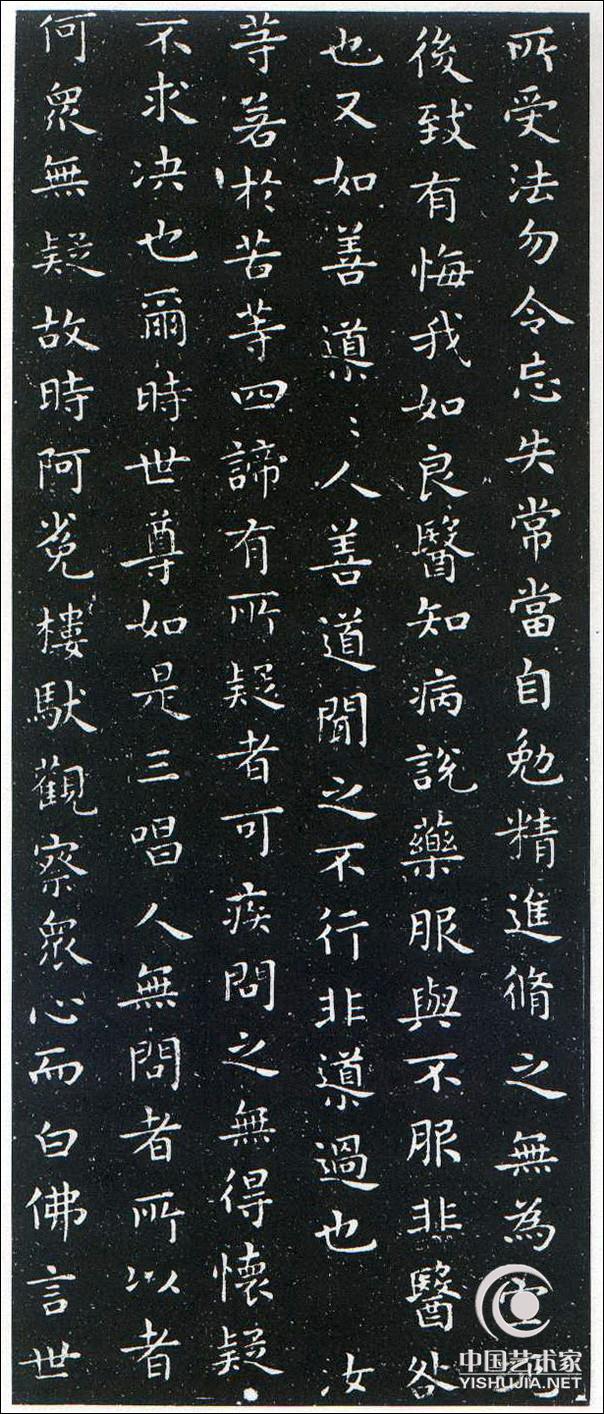 所受法勿令忘失常當自勉精進脩之無為空
後致有悔我如良醫知病說藥服與不服非醫咎
也又如善導〻人善道聞之不行非導過也 汝
等若於苦等四諦有所疑者可疾問之無得懷疑
不求决也爾時世尊如是三唱人無問者所以者
何眾無疑故時阿㝹樓馱觀察眾心而白佛言世
中国艺术家
YISHUJIA.NET